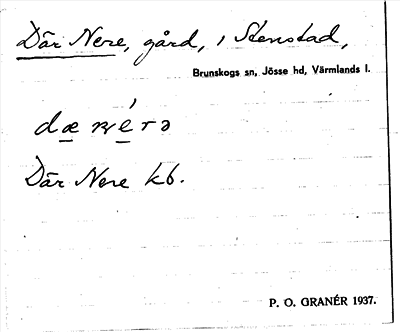 Där Nere, gård, i Stenstad,
Brunskogs sn, Jösse hd, Värmlands l.
dæ né̱rə
Där Nere kb.
P. O. GRANÉR 1937.